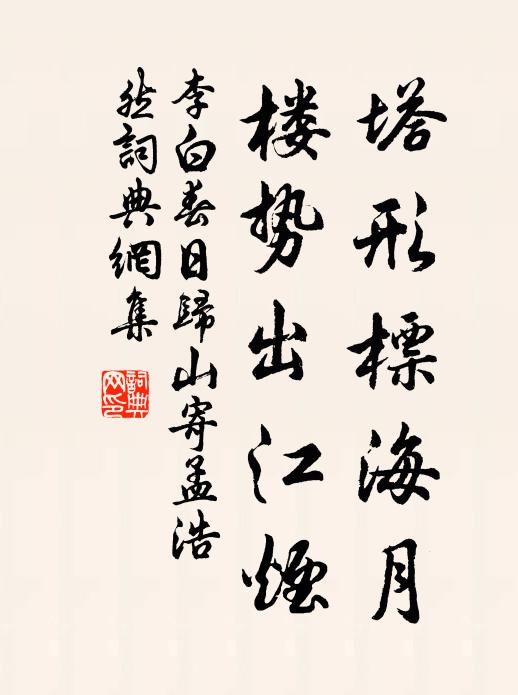 塔形標海月
楼势出江煙
李白春日歸山寄孟浩
然詞典網集
詞典
网印